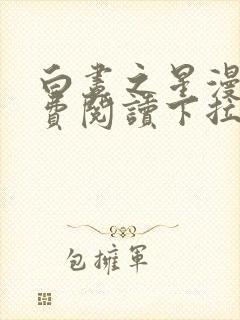 白晝之星漫
費閱讀下拉
包擁軍